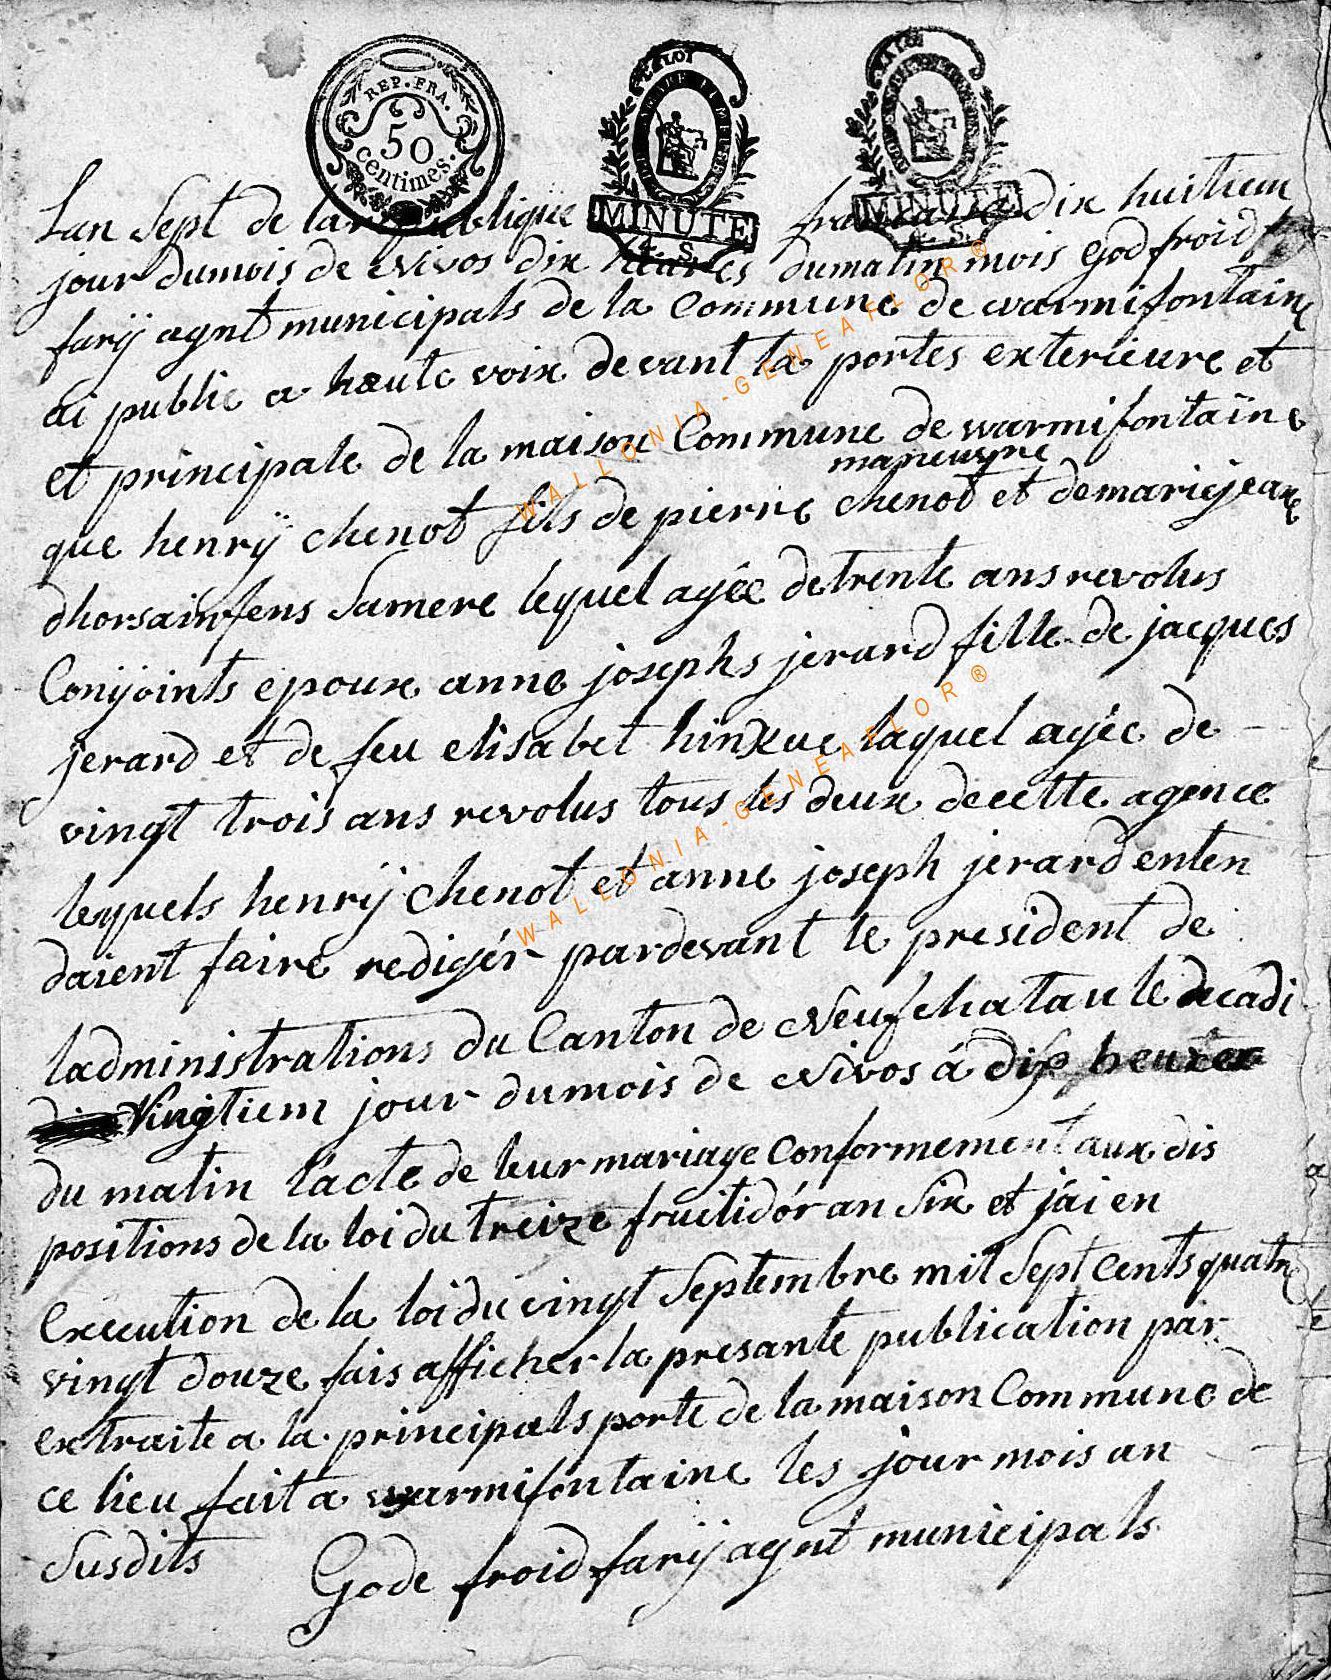 REP. FRA.
50
centimes.
LA LOI
MINUTE
4. S.
LA LOI
MINUTE
4. S.
Lan Sept de la republique francaise dix huitiem
jour dumois de Nivos dix heures dumatin mois Godfroid
farÿ agnt municipals de la Commune de warmifontaine
ai public a haute voix devant la portes exterieure et
et principale de la maison Commune de warmifontaine
maneuvre
que henrÿ chenot fils de pierre chenot et demariejeane
dhorsainfens Samere lequel agée detrente ans revolus
Conjoints epoux anne josephs jerard fille de jacques
jerard et de feu elisabet hinxue laquel agée de
vingt trois ans revolus tous les deux decette agence
lequels henrij chenot et anne joseph jerard enten
daient faire redigér pardevant le president de
ladministrations du Canton de Neufchatau le decadi
Vingtiem jour dumois de Nivos á dix heures
du matin lacte de leur mariage Conformement aux dis
positions de la loi du treize fruitidór an Six et jái en
Execution de la loi du vingt Septembre mil Sept Cents quatre
vingt douze fais afficher la presante publication par
extraite a la principals porte de la maison Commune de
ce lieu fait a warmifontaine les jour mois an
Susdits Gode froid farij agnt municipals
WALLONIA-GENEAFLOR®
WALLONIA-GENEAFLOR®